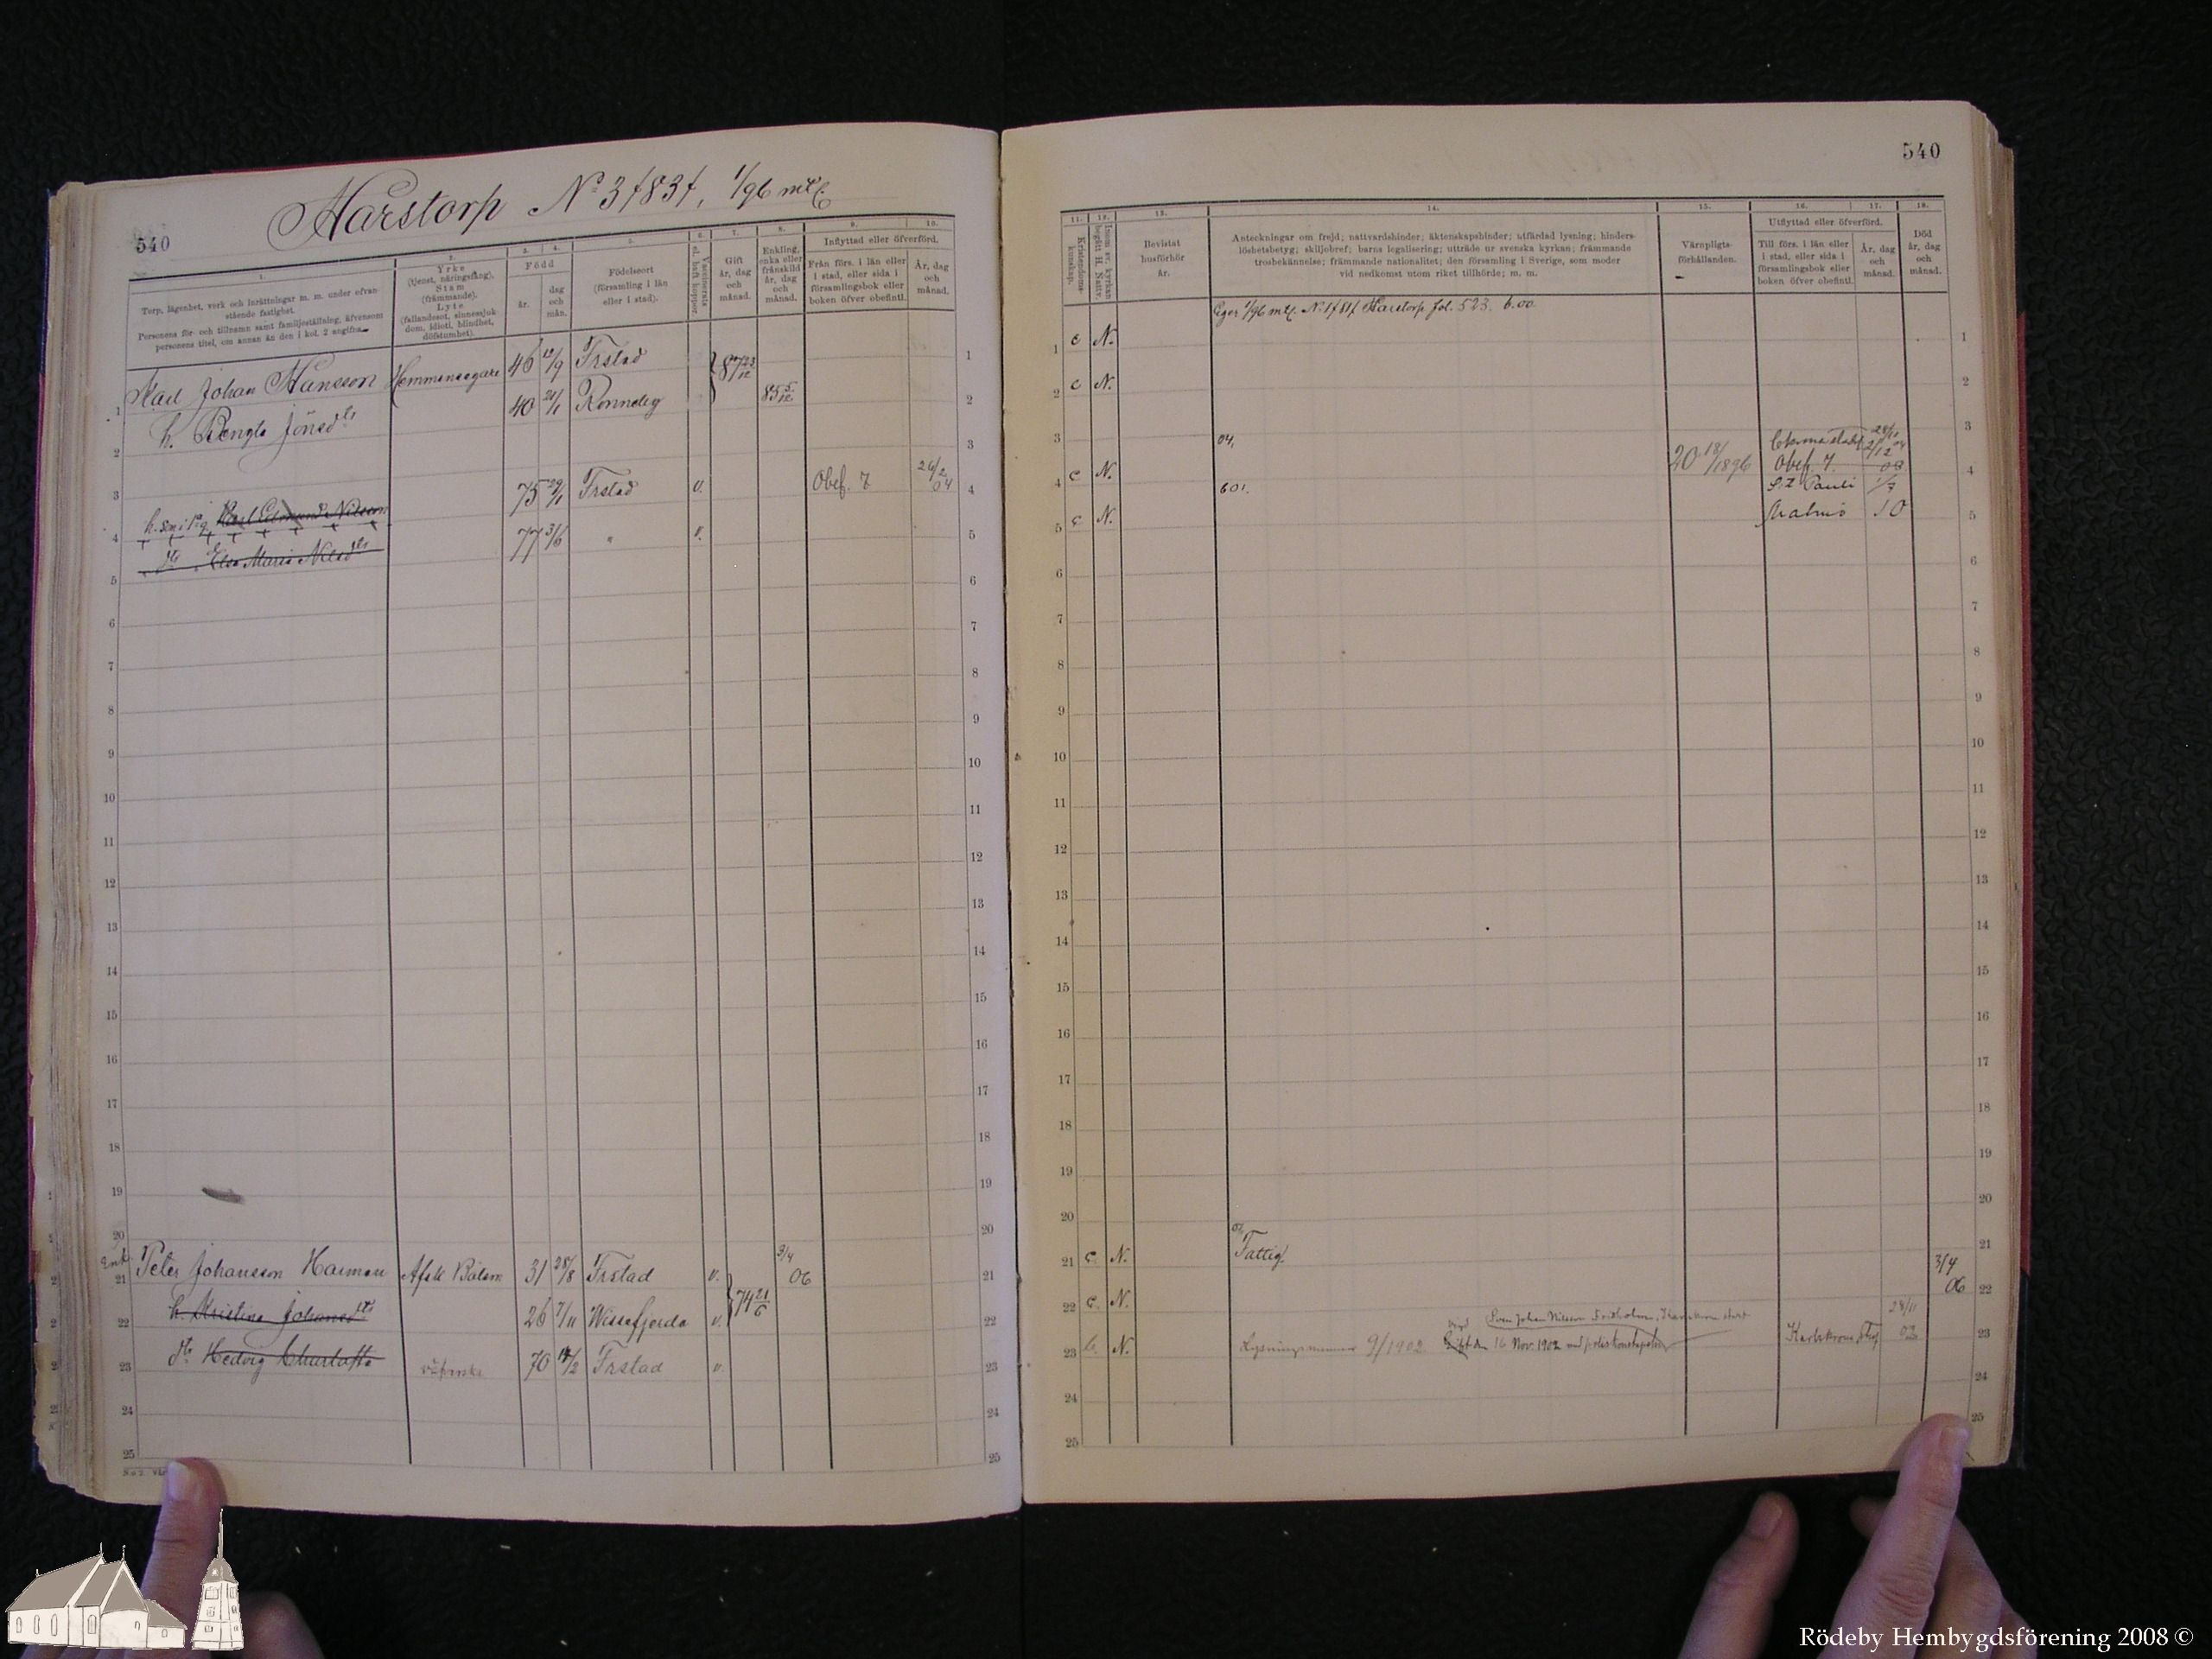 Harstorp No 3/83/, 1/96 mtl.
540
1.
Torp, lägenhet, verk och inrättningar m. m. under ofvan-
stående fastighet.
Personens för- och tillnamn samt familjeställning, äfvensom
personens titel, om annan än den i kol. 2 angifna.
2.
Yrke
(tjenst, näringsfång).
Stam
(främmande).
Lyte
(fallandesot, sinnessjuk-
dom, idioti, blindhet,
döfstumhet).
3. 4.
Född
år.
dag
och
mån.
5.
Födelseort
(församling i län
eller i stad).
6.
Vaccinerats
el. haft koppor.
7.
Gift
år, dag
och
månad.
8.
Enkling,
enka eller
frånskild
år, dag
och
månad.
9. 10.
Inflyttad eller öfverförd.
Från förs. i län eller
i stad, eller sida i
församlingsbok eller
boken öfver obefintl.
År, dag
och
månad.
Karl Johan Hansson Hemmansegare 46 12/9 Frstad 87 23/12
h. Bengta Jönsdtr 40 21/1 Ronneby 85 5/12
h. son i f. g. Karl Edmund Nilsson 75 29/1 Frstad v. Obef. 7 26/2 04
dtr Elsa Maria Nilsdtr 77 3/6 " v.
Enkl. Peter Johansson Harman Afsk Båtsm 31 28/8 Frstad v. 74 21/6 3/4 06
h. Kristina Johansdtr 26 7/11 Wissefjerda v.
dtr Hedvig Charlotta 70 14/2 Frstad v.
540
11.
Kristendoms-
kunskap.
12.
Inom sv. kyrkan
begått H. Nattv.
13.
Bevistat
husförhör
år.
14.
Anteckningar om frejd; nattvardshinder; äktenskapshinder; utfärdad lysning; hinders-
löshetsbetyg; skiljobref; barns legalisering; utträde ur svenska kyrkan; främmande
trosbekännelse; främmande nationalitet; den församling i Sverige, som moder
vid nedkomst utom riket tillhörde; m. m.
15.
Värnpligts-
förhållanden.
16. 17.
Utflyttad eller öfverförd.
Till förs. i län eller
i stad, eller sida i
församlingsbok eller
boken öfver obefintl.
År, dag
och
månad.
18.
Död
år, dag
och
månad.
Eger 1/96 mtl. No 1/81/ Harstorp fol. 523. 6.00.
c N.
c N.
04,
c N. 20 18/1896 Obef. 7.
601. S:t Pauli 1/7
c N. Malmö 10
c. N. Fattig. 3/4 06
c. N.
Sven Johan Nilsson Fridholm, Karlskrona stads
N. Lysningsnummer 9/1902. Gift den 16 Nov. 1902 med poliskonstapeln Karlskrona stadsf. 28/11 02
Rödeby Hembygdsförening 2008 ©